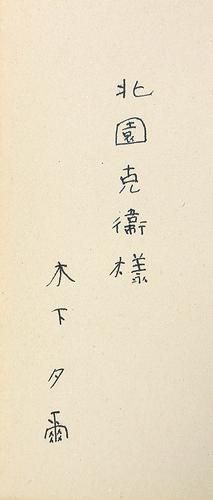 北園克衛様
木下夕爾